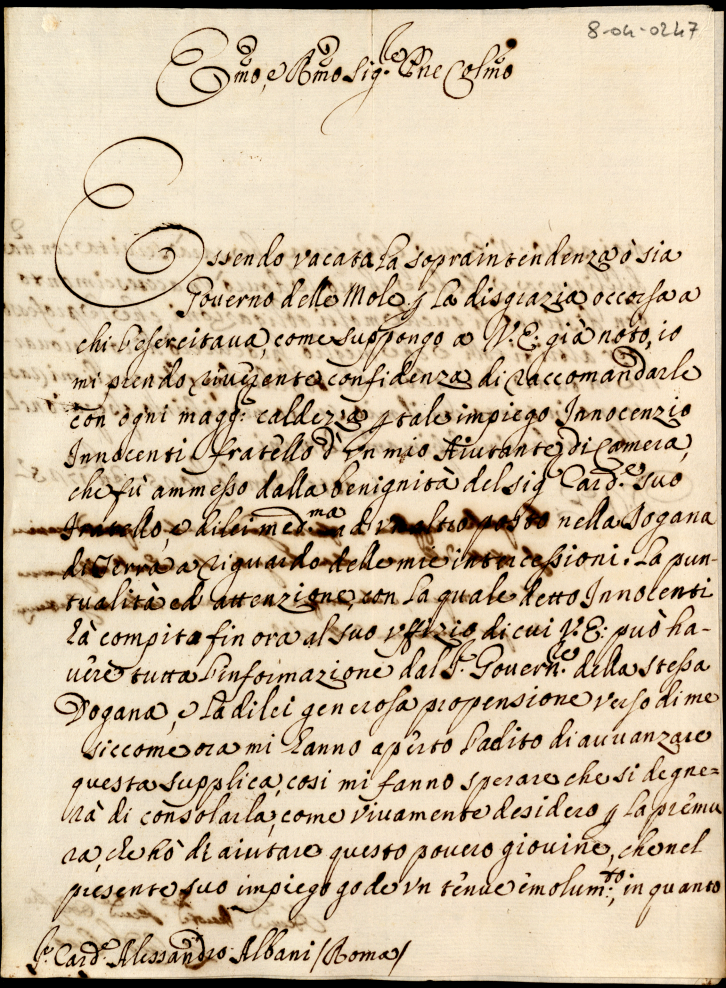 8-04-0247
Emo, e Rmo Sig.re Pne Colmo
Essendo vacata la sopraintendenza ò sia
Governo delle Mole p la disgrazia occorsa a
chi l'esercitava, come suppongo a V. E. già noto, io
mi prendo riverente confidenza di raccomandarle
con ogni magg.r caldezza p tale impiego Innocenzio
Innocenti fratello d'un mio Aiutante di Camera,
che fù ammesso dalla benignità del sig Card.e suo
fratello, e di lei med.ma ad un altro posto nella Dogana
di Terra a riguardo delle mie intercessioni. La pun-
tualità ed attenzione, con la quale detto Innocenti
hà compito fin ora al suo uffizio di cui V. E. può ha-
vere tutta l'informazione dal S.r Govern.re della stessa
Dogana, e la di lei generosa propensione verso di me
siccome ora mi hanno aperto l'adito di avvanzare
questa supplica, cosi mi fanno sperare che si degne=
rà di consolarla, come vivamente desidero p la premu
ra, che hò di aiutare questo povero giovine, che nel
presente suo impiego gode un tenue emolum.to, in quanto
S.r Card.e Alessandro Albani /Roma/